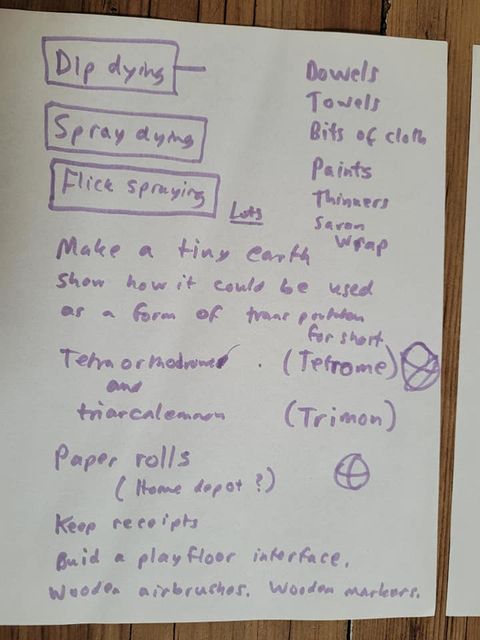 Dip dying
Spray dying
Flick spraying
Lots
Dowels
Towels
Bits of cloth
Paints
Thinners
Saran
Wrap
Make a tiny earth
show how it could be used
as a form of
for short
(Tetrome)
and
(Trimon)
Paper rolls
(Home depot?)
Keep receipts
Buid a playfloor interface.
Wooden airbrushes. Wooden markers.